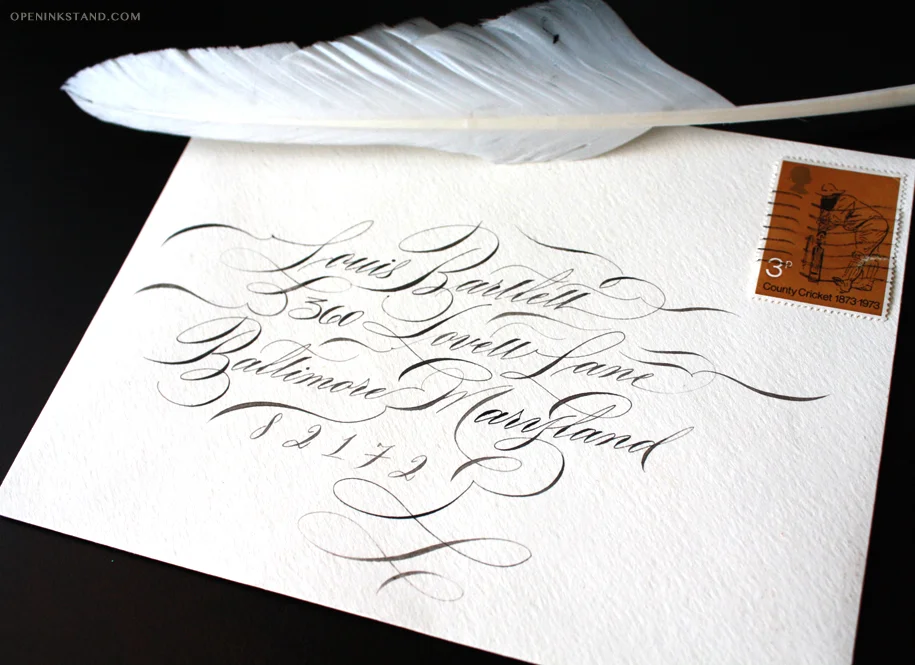 OPENINKSTAND.COM
Louis Bartlett
360 Lovell Lane
Baltimore Maryland
82172
3P
County Cricket 1873-1973